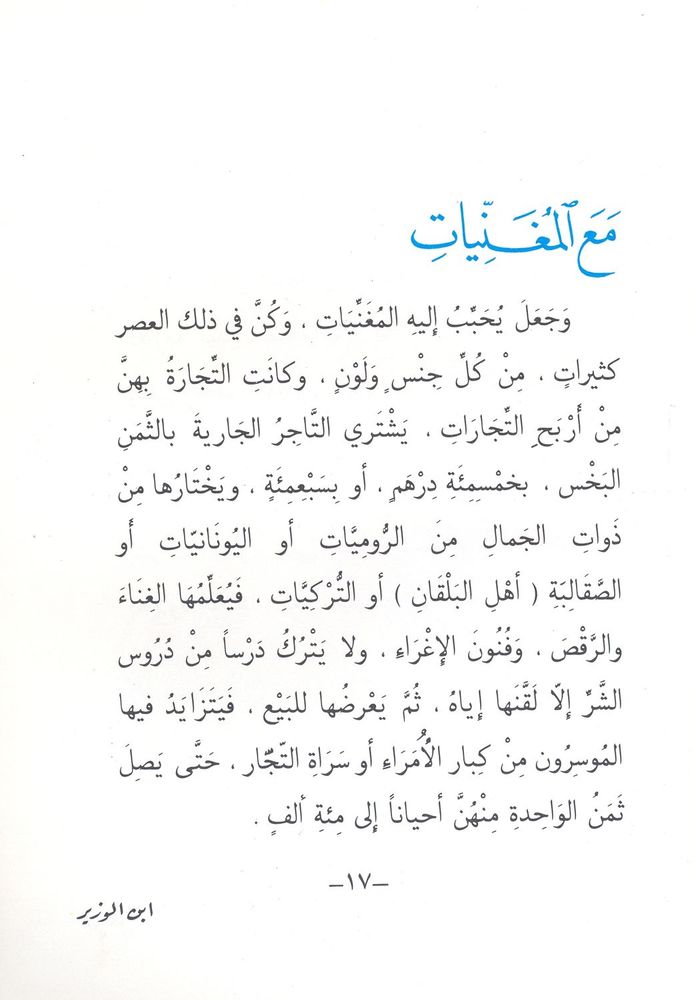 مَعَ ٱلْمُغَنِّيَاتِ
وَجَعَلَ يُحَبِّبُ إليهِ المُغَنِّيَاتِ ، وَكُنَّ في ذلك العصر
كثيراتٍ ، مِنْ كُلِّ جِنْسٍ وَلَوْنٍ ، وكانَتِ التِّجَارَةُ بِهِنَّ
مِنْ أَرْبَحِ التِّجَارَاتِ ، يَشْتَري التَّاجِرُ الجَاريةَ بالثَّمَنِ
البَخْس ، بخمْسِمِئَةِ دِرْهَمٍ ، أو بِسَبْعِمِئَةٍ ، ويَخْتَارُها مِنْ
ذَواتِ الجَمالِ مِنَ الرُّومِيَّاتِ أو اليُونَانيّاتِ أَو
الصَّقَالِبَةِ ( أهْلِ البَلْقَانِ ) أو التُّرْكِيَّاتِ ، فَيُعَلِّمُهَا الغِنَاءَ
والرَّقْصَ ، وَفُنُونَ الإِغْرَاءِ ، ولا يَتْرُكُ دَرْساً مِنْ دُرُوس
الشَّرِّ إلّا لَقَّنَها إياهُ ، ثُمَّ يَعْرضُها للبَيْع ، فَيَتَزَايَدُ فيها
المُوسِرُون مِنْ كِبار الأُمَرَاءِ أو سَرَاةِ التّجّار ، حَتَّى يَصِلَ
ثَمَنُ الوَاحِدةِ مِنْهُنَّ أحياناً إلى مِئةِ ألفٍ .
–١٧–
ابن الوزير